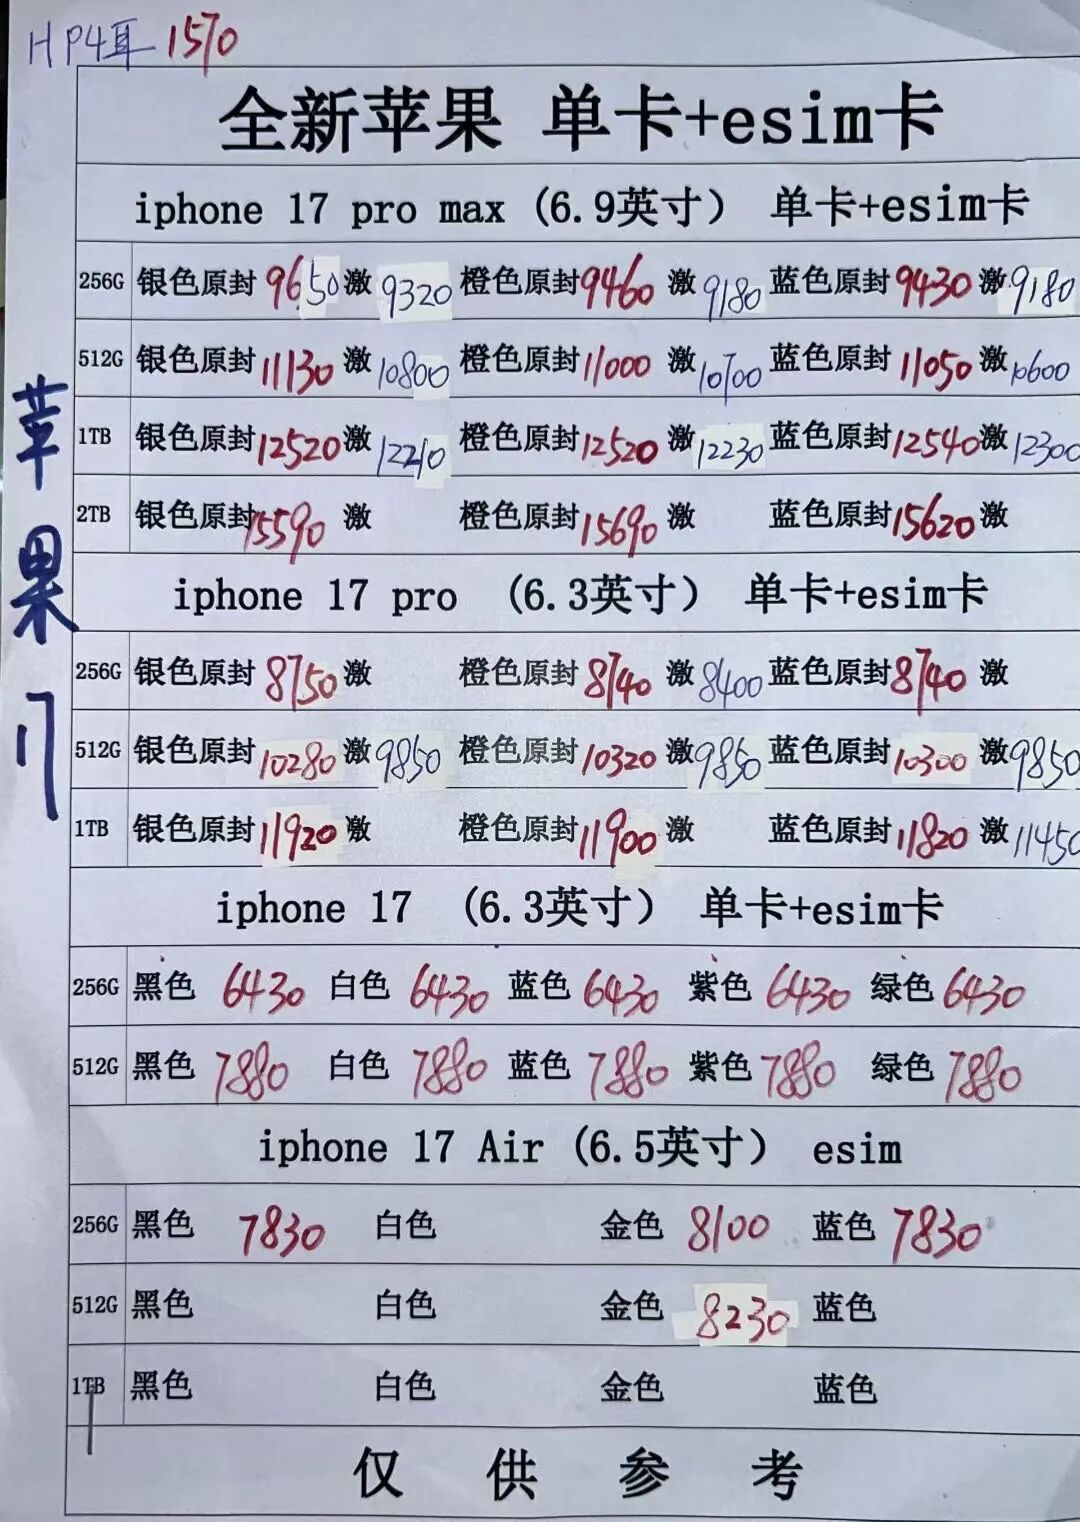 HP4耳 1570
全新苹果 单卡+esim卡
iphone 17 pro max (6.9英寸) 单卡+esim卡
256G 银色原封 9650 激 9320 橙色原封 9460 激 9180 蓝色原封 9430 激 9180
512G 银色原封 11130 激 10800 橙色原封 11000 激 10700 蓝色原封 11050 激 10600
1TB 银色原封 12520 激 12210 橙色原封 12520 激 12230 蓝色原封 12540 激 12300
2TB 银色原封 15590 激 橙色原封 15690 激 蓝色原封 15620 激
iphone 17 pro (6.3英寸) 单卡+esim卡
256G 银色原封 8750 激 橙色原封 8740 激 8400 蓝色原封 8740 激
512G 银色原封 10280 激 9850 橙色原封 10320 激 9850 蓝色原封 10300 激 9850
1TB 银色原封 11920 激 橙色原封 11900 激 蓝色原封 11820 激 11450
iphone 17 (6.3英寸) 单卡+esim卡
256G 黑色 6430 白色 6430 蓝色 6430 紫色 6430 绿色 6430
512G 黑色 7880 白色 7880 蓝色 7880 紫色 7880 绿色 7880
iphone 17 Air (6.5英寸) esim
256G 黑色 7830 白色 金色 8100 蓝色 7830
512G 黑色 白色 金色 8230 蓝色
1TB 黑色 白色 金色 蓝色
仅供参考
苹果17